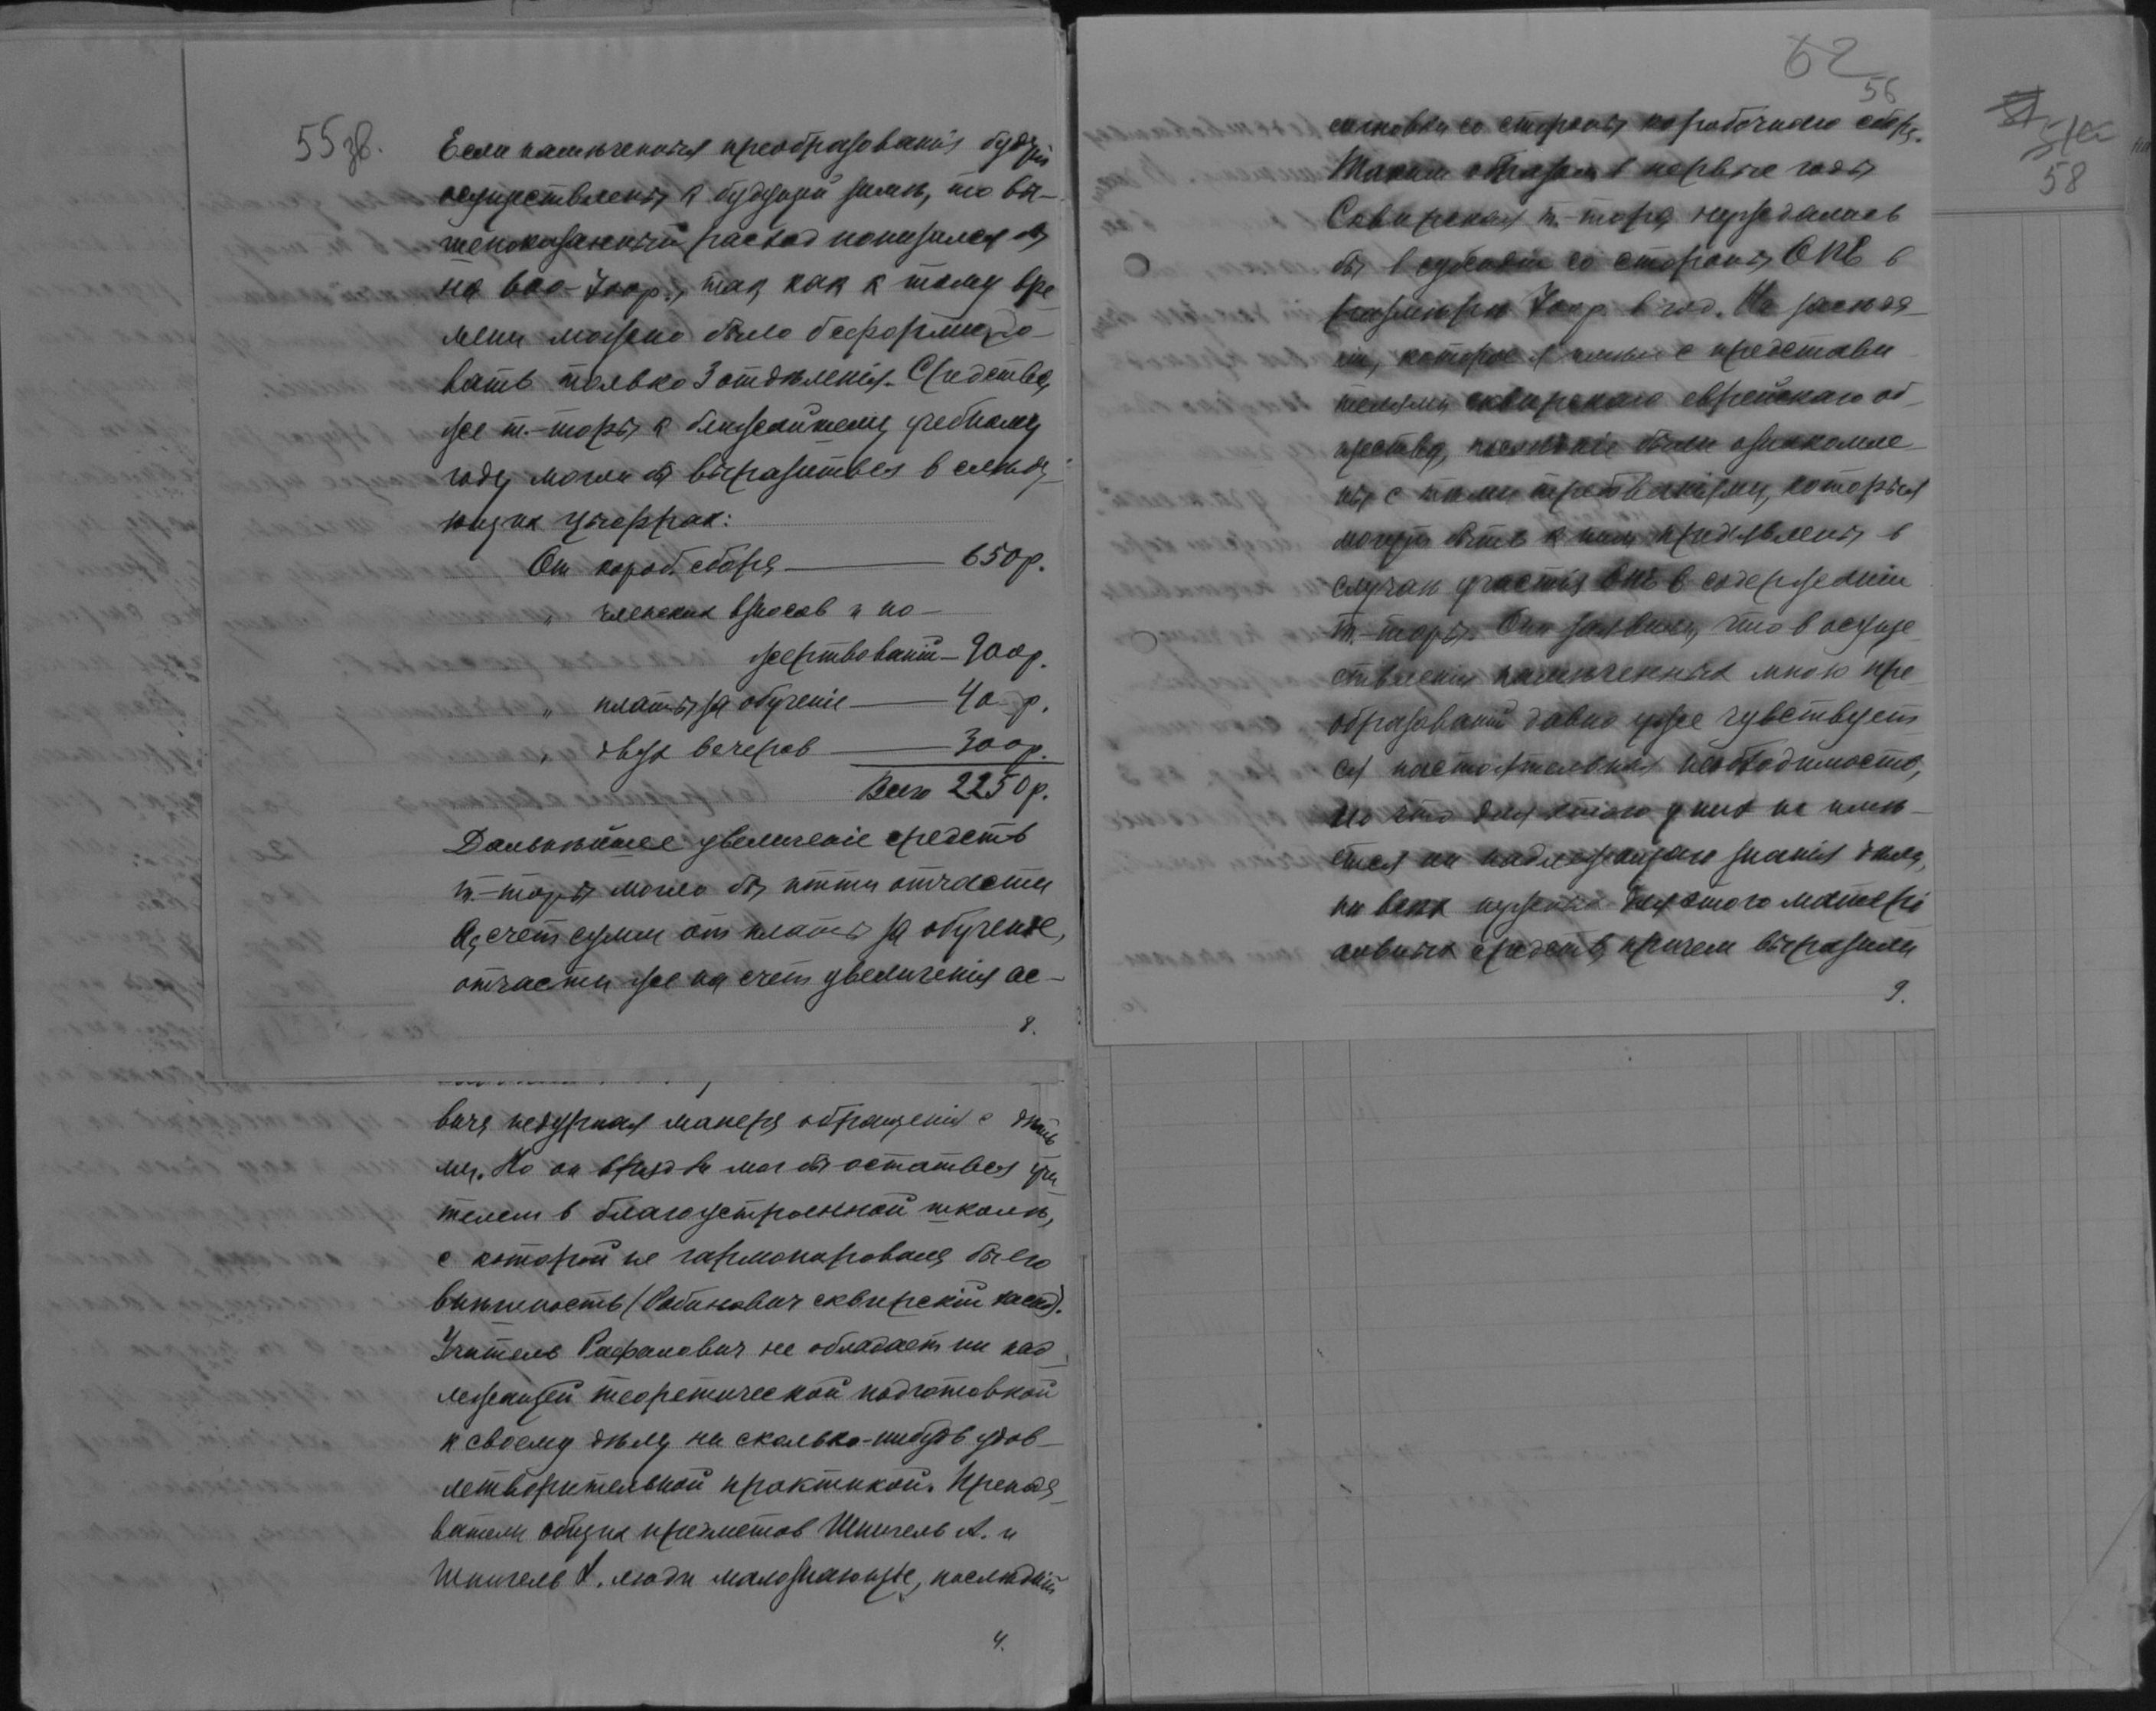 55 зв.
Если намѣченныя преобразованія будут
осуществлены к будущей зимѣ, то вы-
шепоказанный расход понизился бы
на 600-700р., так как к тому вре
мени можно было бы сформиро-
вать только 3 отдѣленія. Средства
же т.-торы к ближайшему учебному
году могли бы выразиться в слѣду-
ющих цифрах:
От короб. сбора — 650р.
„ членских взносов и по-
жертвованій — 900р.
„ платы за обученіе — 400р.
„ двух вечеров — 300р.
Всего 2250р.
Дальнѣйшее увеличеніе средств
т.-торы могло бы итти отчасти
на счет сумм от платы за обученіе,
отчасти же на счет увеличенія ас-
8.
вича недурная манера обращенія с дѣть
ми. Но он врядъ ли мог бы остаться учи
телем в благоустроенной школѣ,
с которой не гармонировала бы его
внѣшность (Рабинович сквирскій хасид).
Учитель Рафалович не обладает ни над
лежащей теоретической подготовкой
к своему дѣлу ни сколько-нибудь удов-
летворительной практикой. Препода
ватели общих предметов Шпигель А. и
Шпигель Х. люди малознающіе, послѣдній
4.
62
56
сигновки со стороны коробочнаго сбора.
Таким образом в первые годы
Сквирская т.-тора нуждалась
бы в субсидіи со стороны ОПЕ в
размѣрѣ 700р. в год. На засѣда
ніи, которое я имѣл с представи
телями сквирскаго еврейскаго об
щества, послѣдніе были ознакомле-
ны с тѣми требованіями, которыя
могут быть к ним предъявлены в
случаѣ участія ОПЕ в содержаніи
т.-торы. Они заявили, что в осуще
ствленіи намѣченных мною пре
образованій давно уже чувствует
ся настоятельная необходимость,
но что для этого у них не имѣ-
ется ни надлежащаго знанія дѣла,
ни всѣх нужных для этого матері
альных средств, причем выразили
9.
58